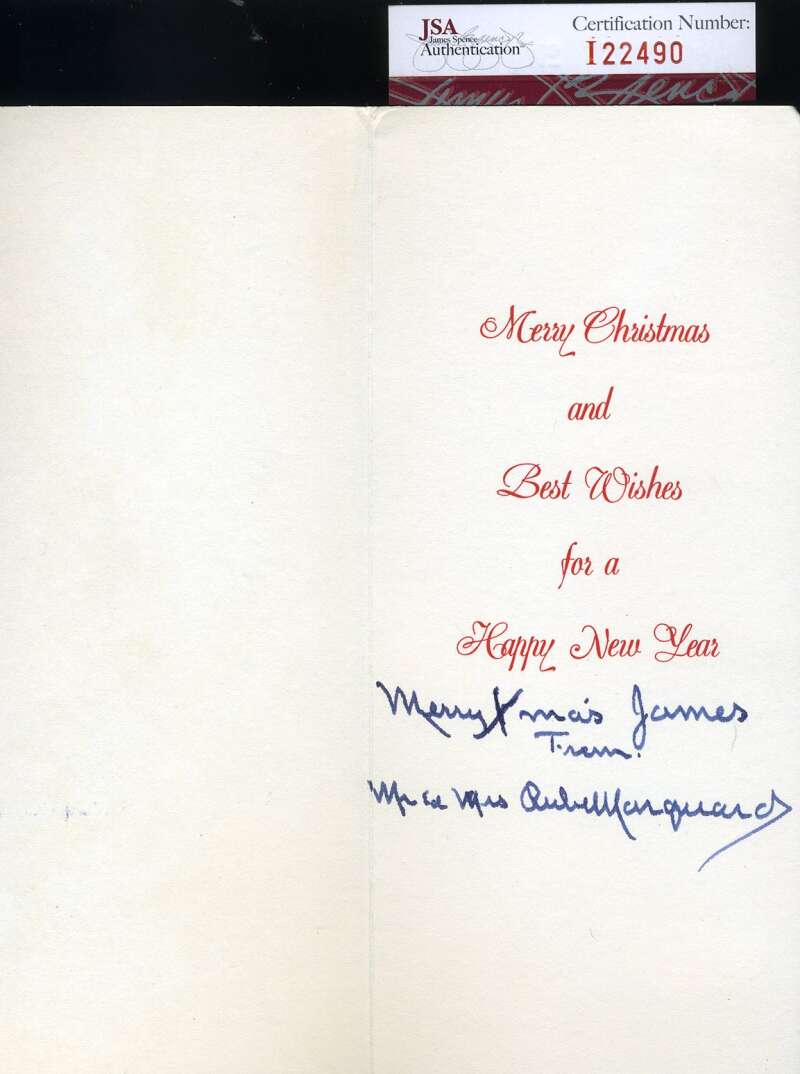 JSA
James Spence
Authentication
Certification Number:
I22490
Merry Christmas
and
Best Wishes
for a
Happy New Year
Merry Xma's James
From.
Mr & Mrs Rube Marquard